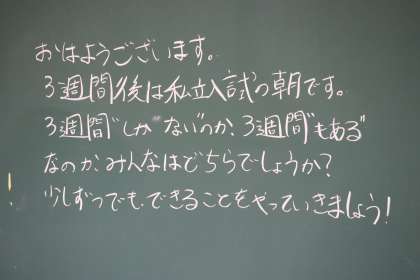 おはようございます。
3週間後は私立入試の朝です。
3週間"しかない"のか、3週間"もある"
なのか、みんなはどちらでしょうか？
少しずつでも、できることをやっていきましょう！